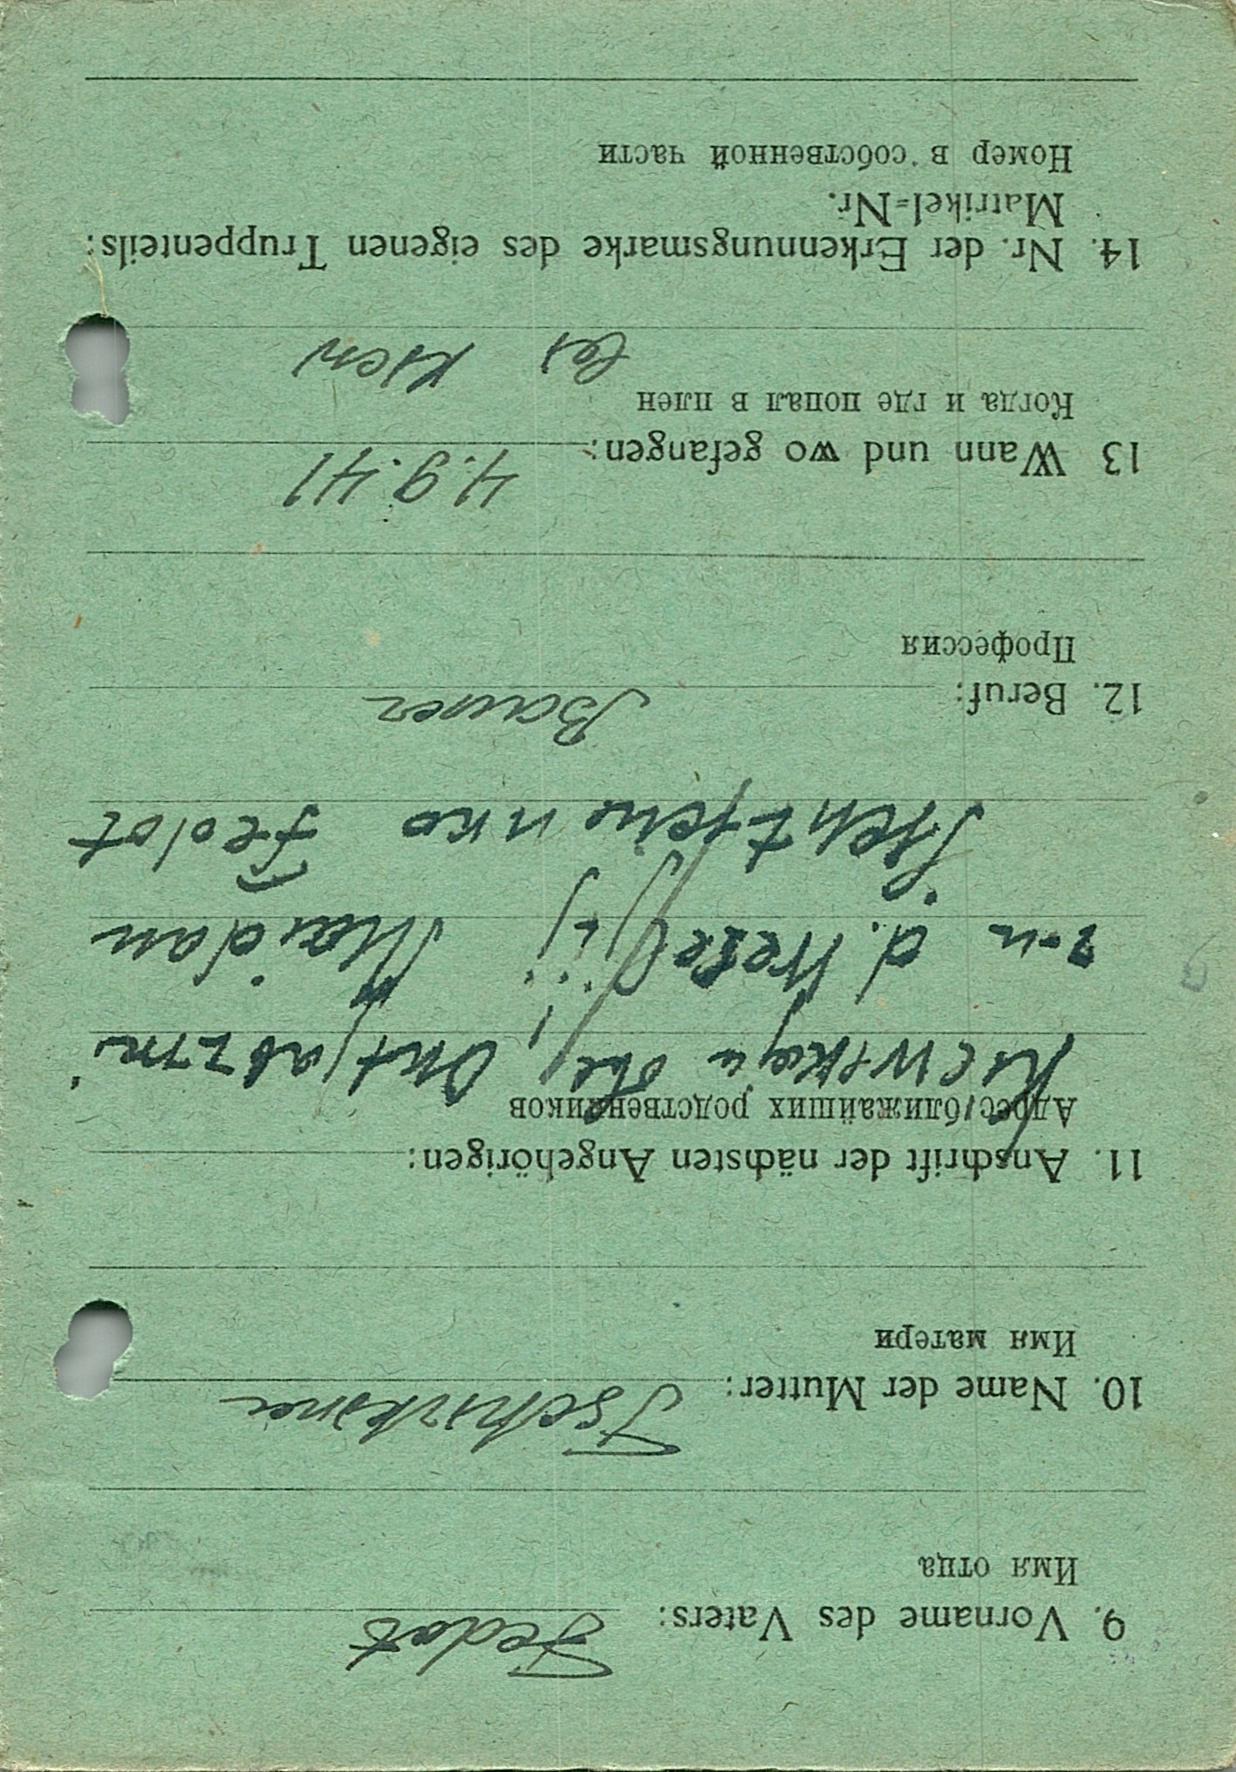 9. Vorname des Vaters: Fedot
Имя отца
10. Name der Mutter:
Имя матери
11. Anschrift der nächsten Angehörigen:
Адрес ближайших родственников
Kiewskaja obl,
d. Maidan
Fedot
12. Beruf: Bauer
Профессия
13 Wann und wo gefangen: 4.9.41
Когда и где попал в плен
bei Kiew
14. Nr. der Erkennungsmarke des eigenen Truppenteils:
Matrikel=Nr.
Номер в собственной части